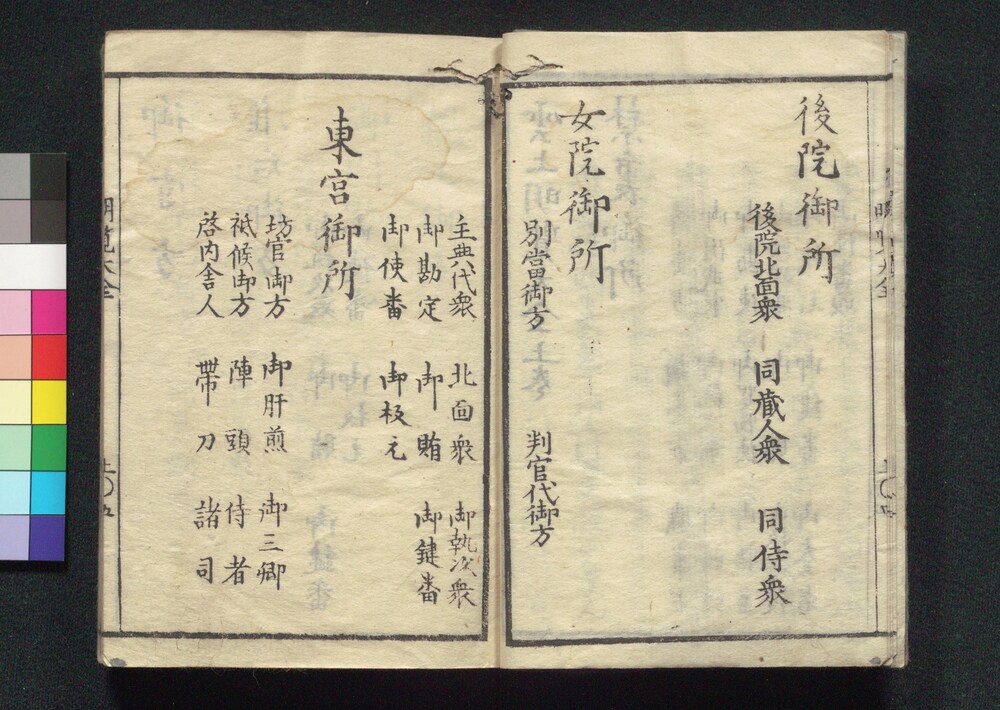 後院御所
後院北面衆 同蔵人衆 同侍衆
女院御所
別當御方 判官代御方
主典代衆 北面衆 御執次衆
御勘定 御賄 御鍵番
御使番 御板元
東宮御所
坊官御方 御肝煎 御三卿
祗候御方 陣頭 侍者
啓内舎人 帯刀 諸司